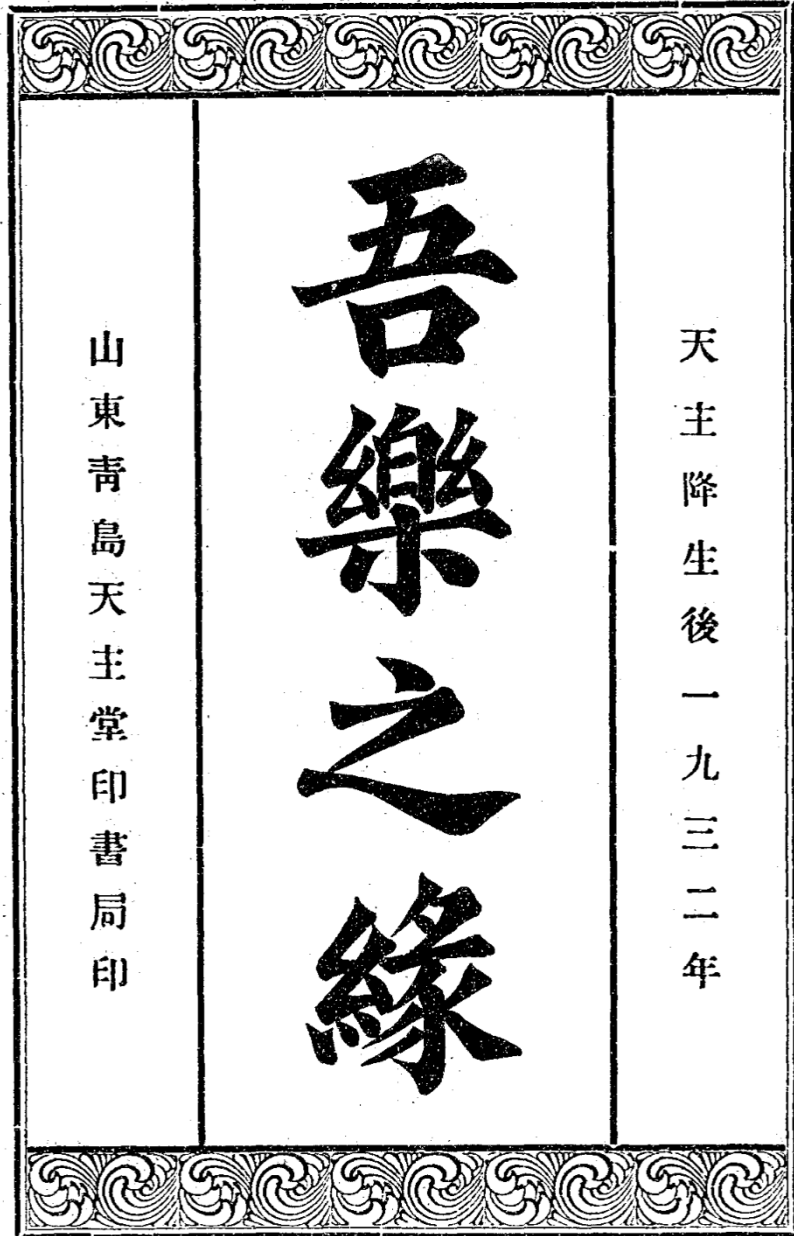 天主降生後一九三二年
吾樂之緣
山東靑島天主堂印書局印